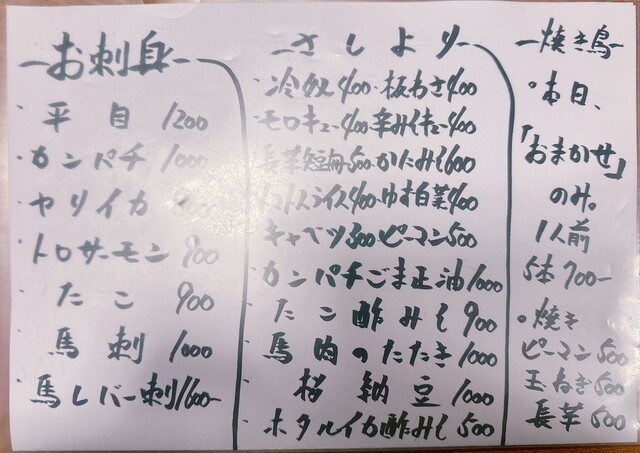 お刺身
平目 1200
カンパチ 1000
ヤリイカ
トロサーモン 900
たこ 900
馬刺 1000
馬レバー刺 1600-
さしより
・冷奴400・板わさ400
・モロキュー400辛みそキュー400
長芋短冊500かたみそ600
トマトスライス400ゆず白菜400
キャベツ300ピーマン500
・カンパチごま正油1000
・たこ酢みそ900
・馬肉のたたき1000
・桜納豆1000
・ホタルイカ酢みそ500
焼き鳥
・本日、
「おまかせ」
のみ。
1人前
5本700-
・焼き
ピーマン500
玉ねぎ500
長芋500